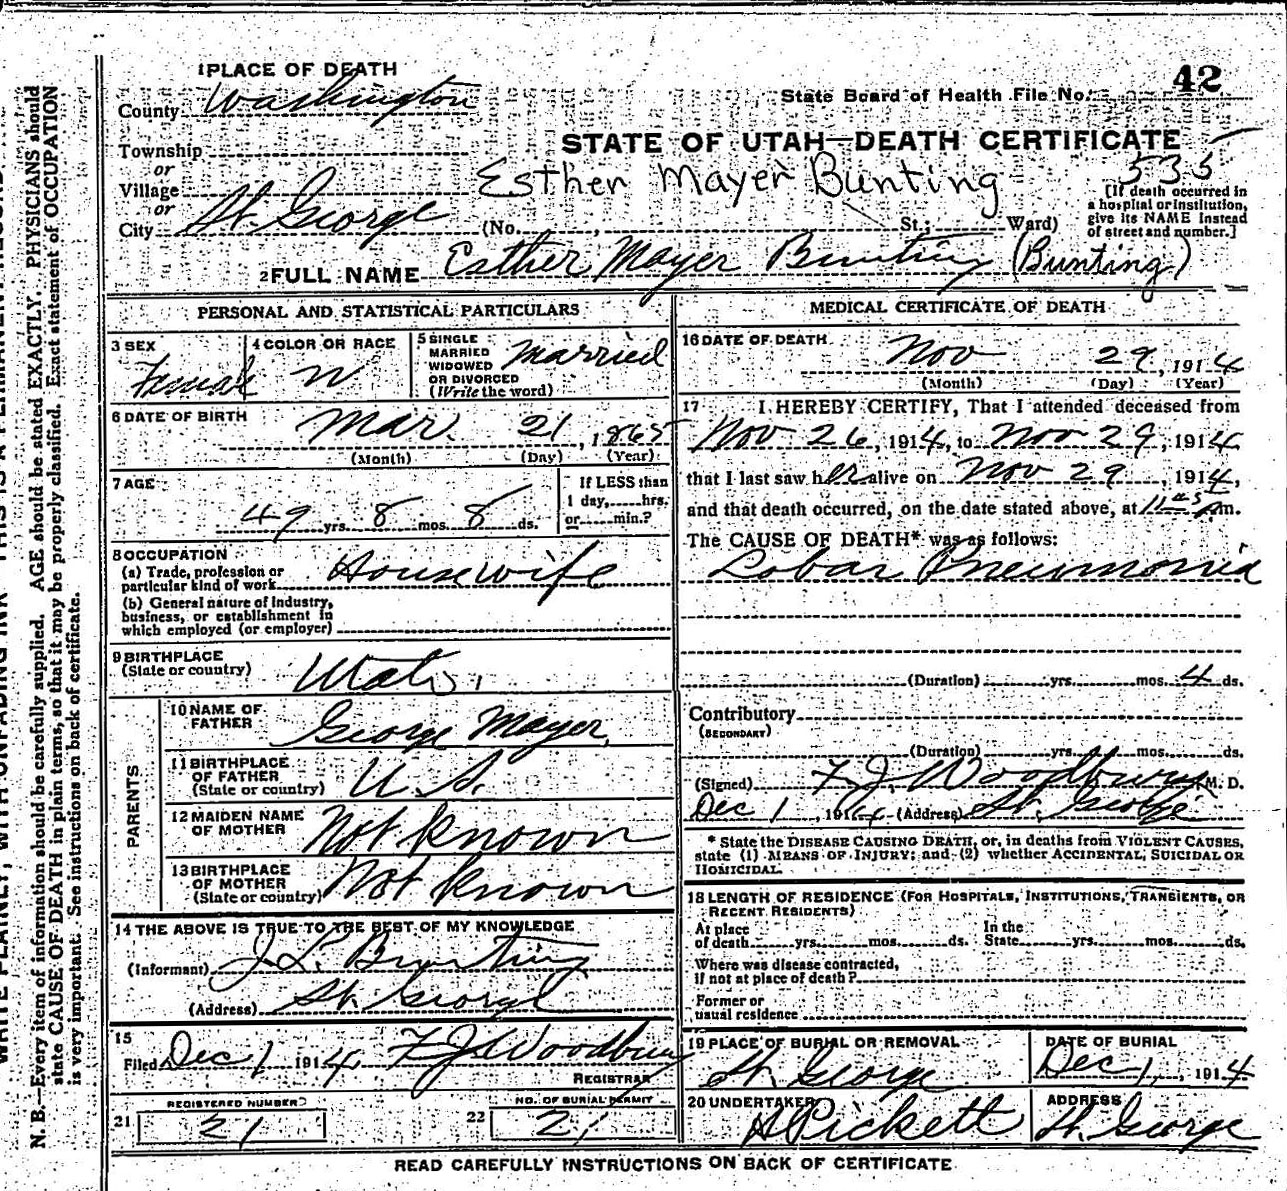 42
1 PLACE OF DEATH
County Washington
State Board of Health File No.
STATE OF UTAH—DEATH CERTIFICATE
Township
or
Village
or
City St. George
Esther Mayer Bunting
535
(No. , St.; Ward)
[If death occurred in
a hospital or institution,
give its NAME instead
of street and number.]
2 FULL NAME Esther Mayer Bunting (Bunting)
PERSONAL AND STATISTICAL PARTICULARS
3 SEX Female
4 COLOR OR RACE W
5 SINGLE
MARRIED
WIDOWED
OR DIVORCED
(Write the word)
Married
6 DATE OF BIRTH
Mar. 21, 1865
(Month) (Day) (Year)
7 AGE
49 yrs. 8 mos. 8 ds.
If LESS than
1 day,......hrs.
or......min.?
8 OCCUPATION
(a) Trade, profession or
particular kind of work Housewife
(b) General nature of industry,
business, or establishment in
which employed (or employer)
9 BIRTHPLACE
(State or country) Utah
PARENTS
10 NAME OF
FATHER George Mayer
11 BIRTHPLACE
OF FATHER
(State or country) U. S.
12 MAIDEN NAME
OF MOTHER Not Known
13 BIRTHPLACE
OF MOTHER
(State or country) Not Known
14 THE ABOVE IS TRUE TO THE BEST OF MY KNOWLEDGE
(Informant) Bunting
(Address) St. George
15
Filed Dec 1 1914 F J Woodbury
REGISTRAR
REGISTERED NUMBER
21 21
NO. OF BURIAL PERMIT
22 21
MEDICAL CERTIFICATE OF DEATH
16 DATE OF DEATH
Nov 29, 1914
(Month) (Day) (Year)
17 I HEREBY CERTIFY, That I attended deceased from
Nov 26, 1914, to Nov 29, 1914
that I last saw her alive on Nov 29, 1914,
and that death occurred, on the date stated above, at 11 m.
The CAUSE OF DEATH* was as follows:
Lobar Pneumonia
(Duration) yrs. mos. 4 ds.
Contributory
(SECONDARY)
(Duration) yrs. mos. ds.
(Signed) F. J. Woodbury M. D.
Dec 1, 1914 (Address) St. George
* State the DISEASE CAUSING DEATH, or, in deaths from VIOLENT CAUSES,
state (1) MEANS OF INJURY; and (2) whether ACCIDENTAL, SUICIDAL OR
HOMICIDAL.
18 LENGTH OF RESIDENCE (FOR HOSPITALS, INSTITUTIONS, TRANSIENTS, OR
RECENT RESIDENTS)
At place
of death yrs. mos. ds.
In the
State yrs. mos. ds.
Where was disease contracted,
If not at place of death?
Former or
usual residence
19 PLACE OF BURIAL OR REMOVAL
St. George
DATE OF BURIAL
Dec 1, 1914
20 UNDERTAKER
Pickett
ADDRESS
St. George
READ CAREFULLY INSTRUCTIONS ON BACK OF CERTIFICATE
N. B.—Every item of information should be carefully supplied. AGE should be stated EXACTLY. PHYSICIANS should
state CAUSE OF DEATH in plain terms, so that it may be properly classified. Exact statement of OCCUPATION
is very important. See instructions on back of certificate.